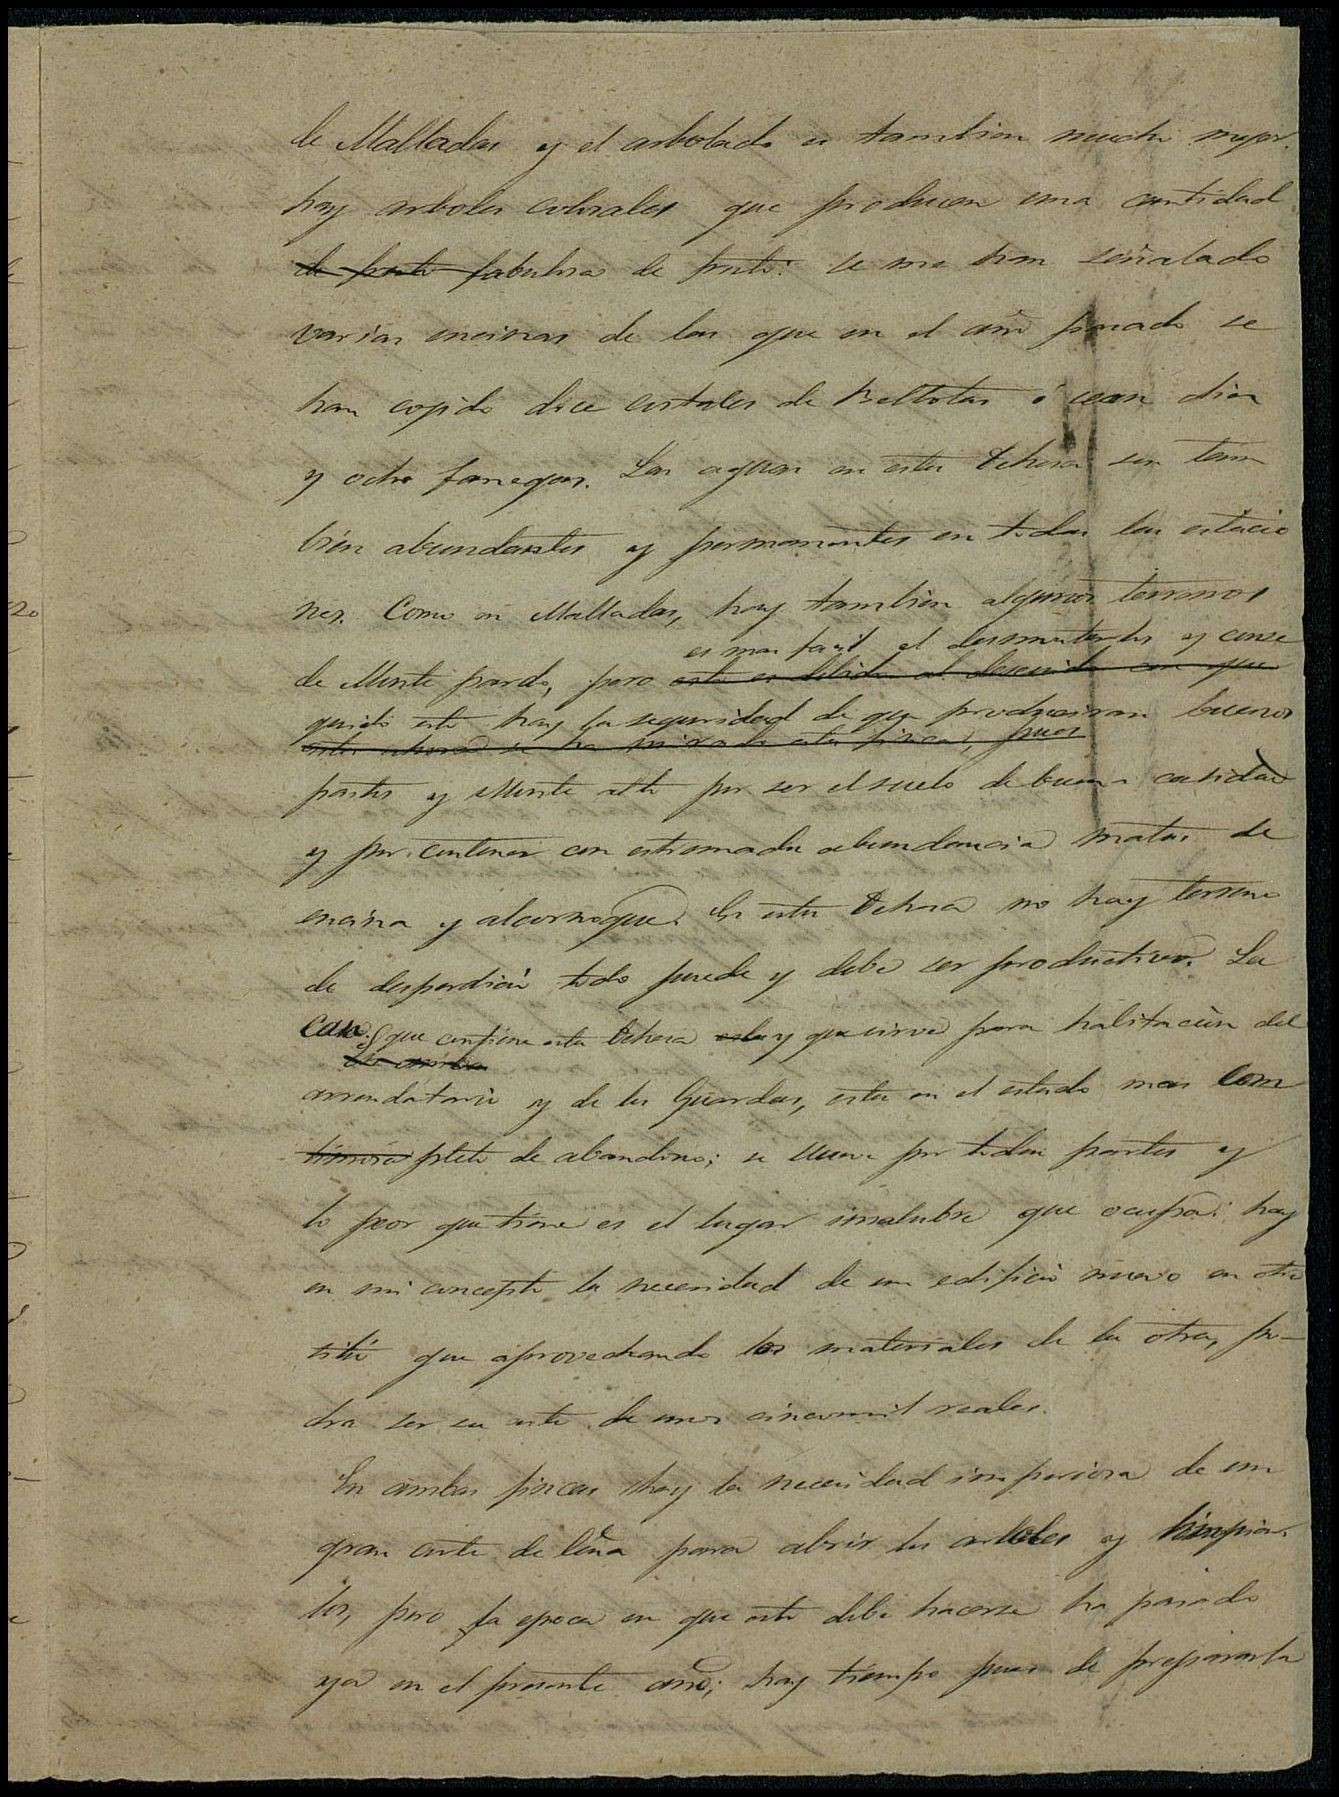 de Malladas y el arbolado es tambien mucho mejor.
hay arboles colosales que producen una cantidad
de fruto fabulosa de fruto: se me han señalado
varias encinas de las que en el año pasado se
han cojido doce costales de Bellotas ó sean diez
y ocho fanegas. Las aguas en esta Dehesa son tam
bien abundantes y permanentes en todas las estacio
nes. Como en Malladas, hay tambien algunos terrenos
es mas facil el desmontarlos y conse
de Monte pardo, pero esto es debido al descuido con que
guido esto hay la seguridad de que produciran buenos
esta ahora se ha mirado esta finca, pues
pastos y Monte alto por ser el suelo de buena calidad
y por contener con estremada abundancia matas de
encina y alcornoque. En esta Dehesa no hay terreno
de desperdicio todo puede y debe ser productivo. La
casa que contiene esta Dehesa y que sirve para habitacion del
arrendatario y de los Guardas, esta en el estado mas com
pleto de abandono; se llueve por todas partes y
lo peor que tiene es el lugar insalubre que ocupa: hay
en mi concepto la necesidad de un edificio nuevo en otro
sitio que aprovechando los materiales de la otra, po-
dra ser su coste de unos cinco mil reales.
En ambas fincas hay la necesidad imperiosa de un
gran corte de leña para abrir los arboles y limpiar
los, pero la epoca en que esto debe hacerse ha pasado
ya en el presente año; hay tiempo pues de prepararla